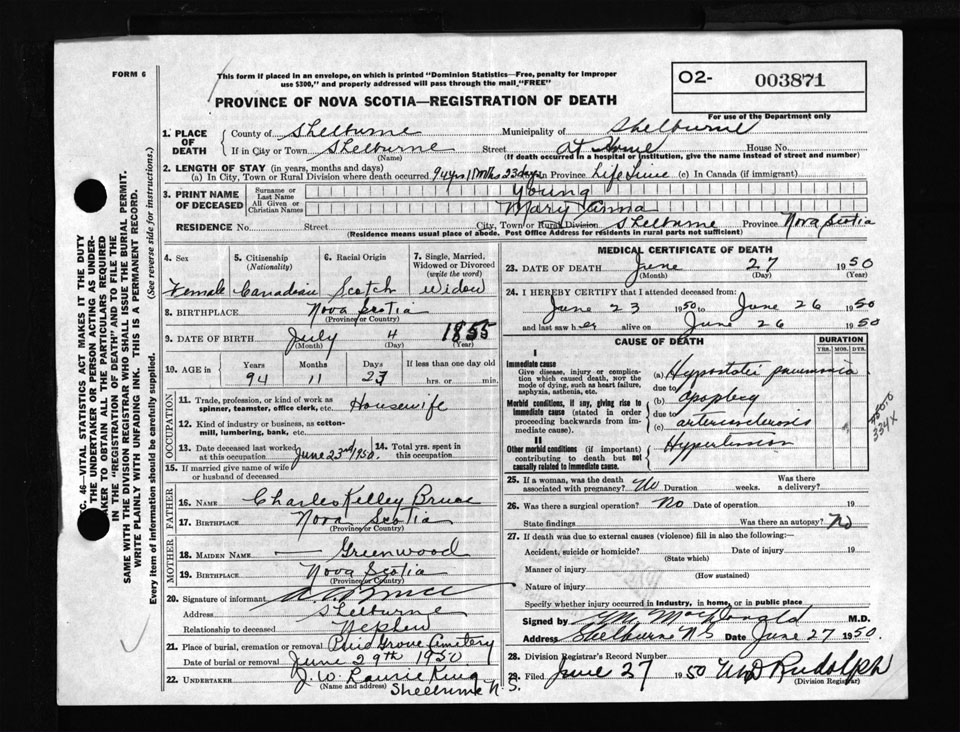 FORM 6
This form if placed in an envelope, on which is printed "Dominion Statistics—Free, penalty for improper
use $300," and properly addressed will pass through the mail "FREE"
O2- 003871
For use of the Department only
PROVINCE OF NOVA SCOTIA—REGISTRATION OF DEATH
1. PLACE OF DEATH
County of Shelburne Municipality of Shelburne
If in City or Town Shelburne Street At Home House No.
(Name) (If death occurred in a hospital or institution, give the name instead of street and number)
2. LENGTH OF STAY (in years, months and days)
(a) In City, Town or Rural Division where death occurred 94 yrs 11 mths 23 days In Province Life Time (c) In Canada (if immigrant)
3. PRINT NAME OF DECEASED
Surname or Last Name Young
All Given or Christian Names Mary Anna
RESIDENCE No. Street City, Town or Rural Division Shelburne Province Nova Scotia
(Residence means usual place of abode. Post Office Address for residents in rural parts not sufficient)
4. Sex 5. Citizenship (Nationality) 6. Racial Origin 7. Single, Married, Widowed or Divorced (write the word)
Female Canadian Scotch Widow
8. BIRTHPLACE Nova Scotia
(Province or Country)
9. DATE OF BIRTH July 4 1855
(Month) (Day) (Year)
10. AGE in Years Months Days If less than one day old
94 11 23 hrs. or min.
OCCUPATION
11. Trade, profession, or kind of work as
spinner, teamster, office clerk, etc. Housewife
12. Kind of industry or business, as cotton-
mill, lumbering, bank, etc.
13. Date deceased last worked at this occupation June 23rd 1950. 14. Total yrs. spent in this occupation
15. If married give name of wife
or husband of deceased
FATHER
16. NAME Charles Kelley Bruce
17. BIRTHPLACE Nova Scotia
(Province or Country)
MOTHER
18. MAIDEN NAME — Greenwood
19. BIRTHPLACE Nova Scotia
(Province or Country)
20. Signature of informant Bruce
Address Shelburne
Relationship to deceased Nephew
21. Place of burial, cremation or removal Grove Cemetery
Date of burial or removal June 29th 1950
22. UNDERTAKER J. W. Laurie King
(Name and address) Shelburne N. S.
MEDICAL CERTIFICATE OF DEATH
23. DATE OF DEATH June 27 1950
(Month) (Day) (Year)
24. I HEREBY CERTIFY that I attended deceased from:
June 23 1950 to June 26 1950
and last saw her alive on June 26 1950
CAUSE OF DEATH DURATION
YRS. MOS. DYS.
I
Immediate cause
Give disease, injury or complica-
tion which caused death, NOT the
mode of dying, such as heart failure,
asphyxia, asthenia, etc.
(a) Hypostatic pneumonia
due to
Morbid conditions, if any, giving rise to
immediate cause (stated in order
proceeding backwards from im-
mediate cause).
(b) apoplexy
due to
(c) arteriosclerosis
334X
II
Other morbid conditions (if important)
contributing to death but not
causally related to immediate cause.
Hypertension
25. If a woman, was the death associated with pregnancy? No Duration weeks. Was there a delivery?
26. Was there a surgical operation? No Date of operation 19
State findings Was there an autopsy? No
27. If death was due to external causes (violence) fill in also the following:—
Accident, suicide or homicide? Date of injury 19
(State which)
Manner of injury
(How sustained)
Nature of injury
Specify whether injury occurred in industry, in home, or in public place
Signed by MacDonald M.D.
Address Shelburne NS Date June 27 1950.
28. Division Registrar's Record Number
29. Filed June 27 1950 Rudolph
(Division Registrar)
SEC. 46—VITAL STATISTICS ACT MAKES IT THE DUTY
OF THE UNDERTAKER OR PERSON ACTING AS UNDER-
TAKER TO OBTAIN ALL THE PARTICULARS REQUIRED
IN THE "REGISTRATION OF DEATH" AND TO FILE THE
SAME WITH THE DIVISION REGISTRAR WHO SHALL ISSUE THE BURIAL PERMIT.
WRITE PLAINLY WITH UNFADING INK. THIS IS A PERMANENT RECORD.
Every item of information should be carefully supplied. (See reverse side for instructions.)